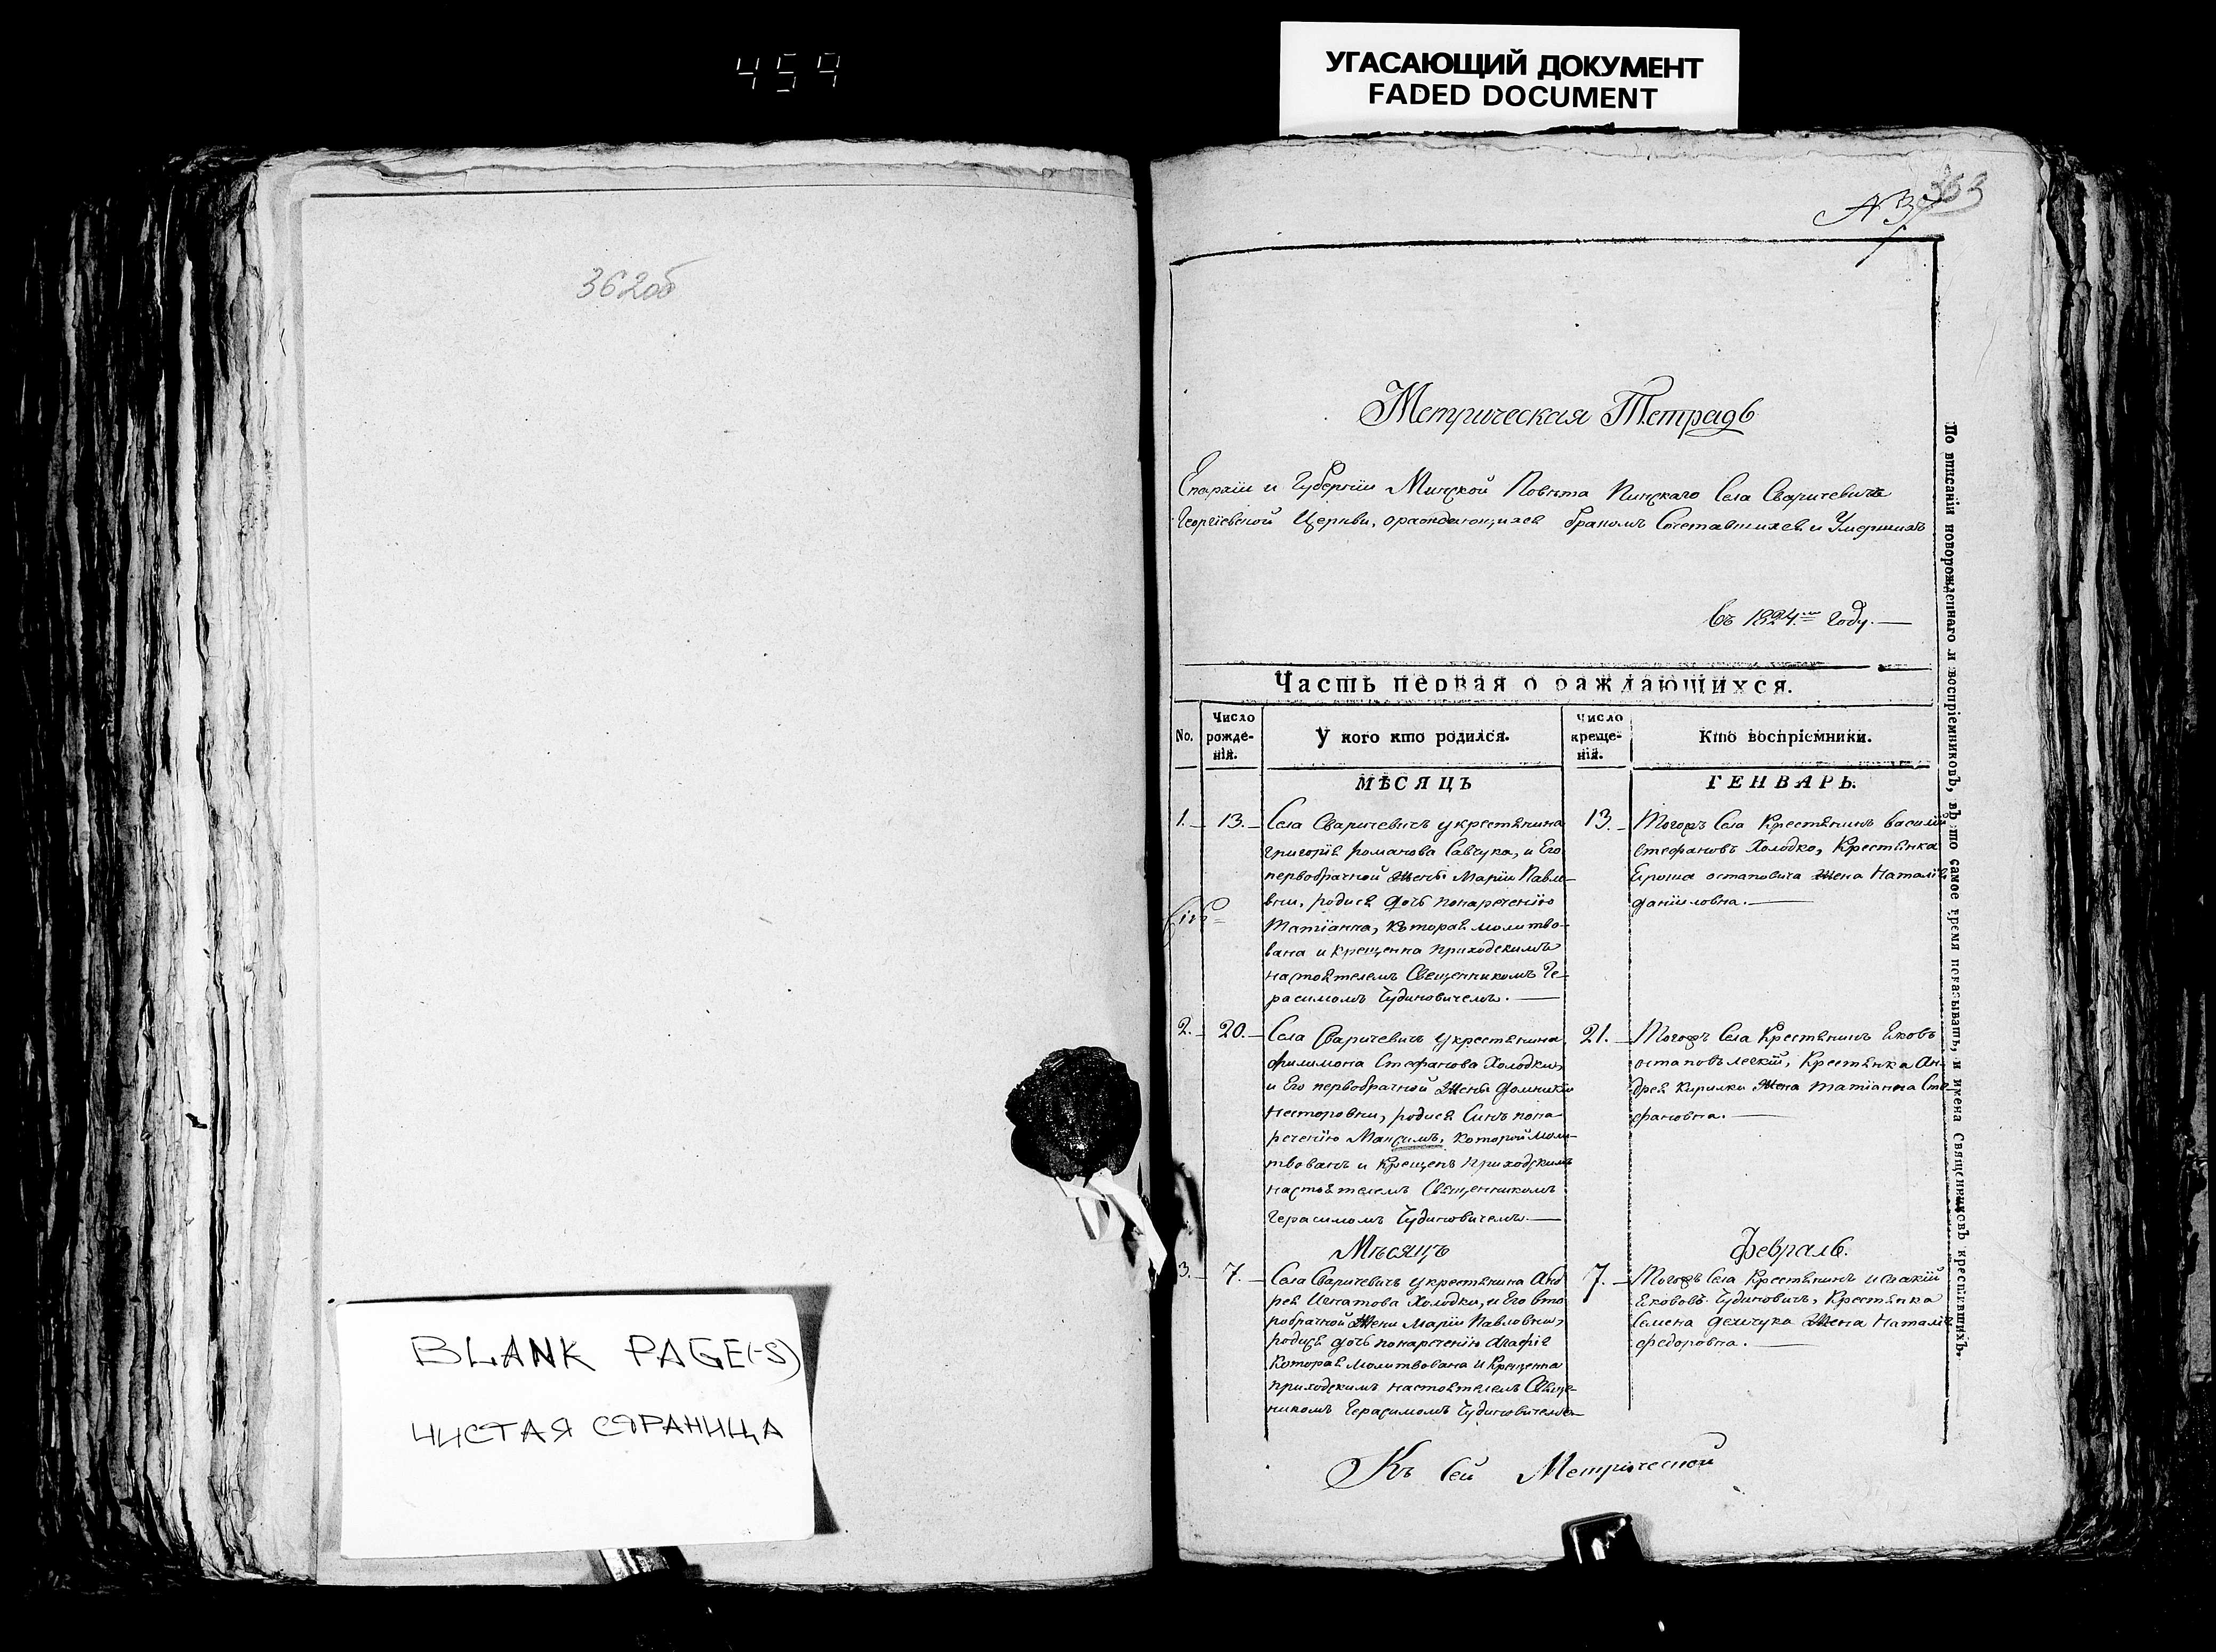 459
УГАСАЮЩИЙ ДОКУМЕНТ
FADED DOCUMENT
362об
BLANK PAGE(-S)
ЧИСТАЯ СТРАНИЦА
363
Метрическая Тетрадь
Епархіи и Губерніи Минской Повѣта Пинскаго Села Сваричевичъ
Георгіевской Церкви, ораждающихся бракомъ Сочетавшихся и Умершихъ
въ 1824.мъ Году.—
Часть первая о раждающихся.
No.
Число рожде-нія.
У кого кто родился.
Число креще-нія.
Кто воспріемники.
МѢСЯЦЪ
ГЕНВАРЬ.
1.
13.
Села Сваричевичъ укрестѣнина
григоріѣ романова Савчука, и Его
первобрачной Жены Маріи Павло-
вни, родисѣ дочь понареченію
Татіанна, котораѣ молитво-
вана и крещенна приходскимъ
настоѣтелемъ Священникомъ Ге-
расимомъ Чудиновичемъ.—
13.
Тогожъ Села Крестѣнинъ василій
стефановъ Холодко, Крестѣнка
остаповича Жена Наталіѣ
даніиловна.—
2.
20.
Села Сваричевичъ укрестѣнина
филимона Стефанова Холодки,
и Его первобрачной Жены домники
Несторовни, родисѣ Синъ пона-
реченію Максимъ, которой моли-
твованъ и Крещенъ приходскимъ
настоѣтелемъ Священникомъ
Герасимомъ Чудиновичемъ.—
21.
Тогожъ Села Крестѣнинъ Ековъ
остаповъ легкій, Крестѣнка Ан-
дреѣ Кирилки Жена татіанна Сте
фановна.—
Мѣсяцъ
февраль.
3.
7.
Села Сваричевичъ укрестѣнина Анд
реѣ Игнатова Холодки, и Его вто
робрачной Жени Маріи Павловни,
родисѣ дочь понареченію Агафіѣ
котораѣ молитвована и Крещенна
приходскимъ настоѣтелемъ Свѣще-
никомъ Герасимомъ Чудиновичемъ—
7.
Тогожъ Села Крестѣнинъ Исакій
Екововъ Чудиновичъ, Крестѣнка
Семена демчука Жена Наталіѣ
федоровна.—
Къ Сей Метрической
По вписаніи новорожденнаго и воспріемниковъ, въ то самое время показывать, и имена Священниковъ крестившихъ.